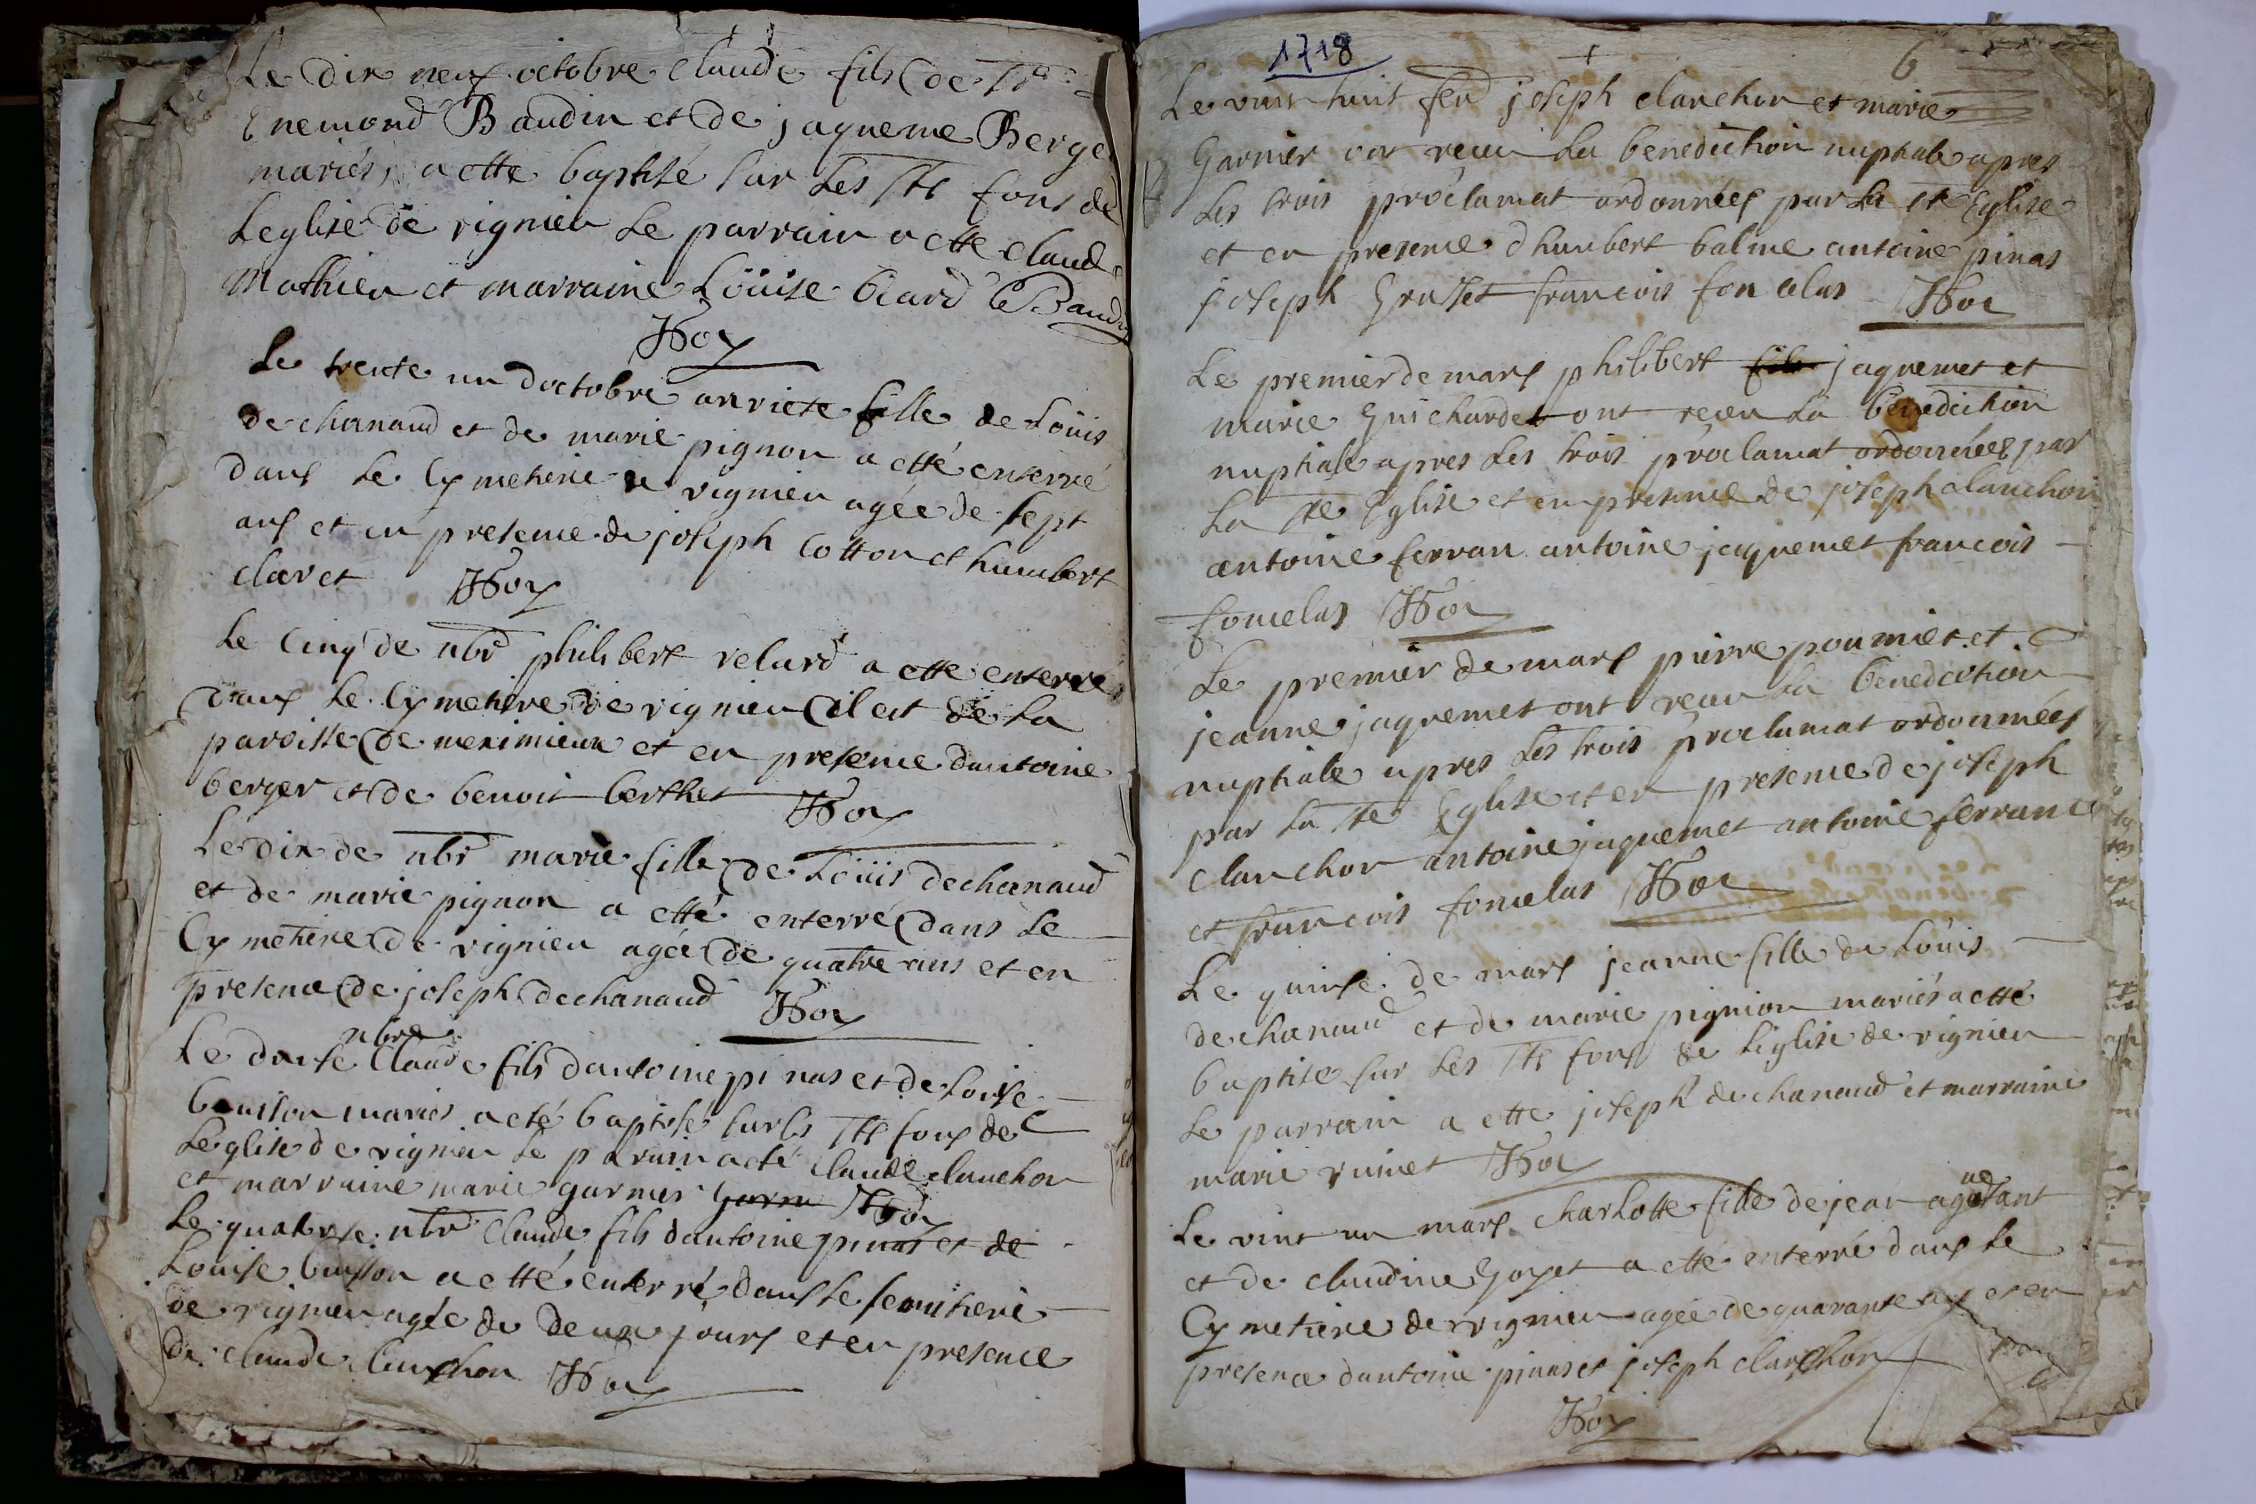 Le dix neuf octobre claude fils de Sr
Enemond Baudin et de jaqueme Berge
mariés, a etté baptisé sur Les Sts fons de
Leglise de rignieu Le parrain a etté claude
Mathieu et marraine Loüise biard C Baudin
Roy
Le trente un doctobre anriete fille de Loüis
de chanaud et de marie pignon a etté enterré
dans Le Cymetiere de rignieu agée de sept
ans et en presence de joseph Cotton et humbert
claret Roy
Le Cinq de nbr philibert relurd a etté enterré
dans Le Cymetiere de rignieu il est de La
paroisse de meximieux et en presence dantoine
berger et de benoit berthet Roy
Le dix de nbr marie fille de Loüis dechanaud
et de marie pignon a etté enterré dans Le
Cymetiere de rignieu agée de quatre ans et en
presence de joseph dechanaud Roy
nbre
Le douse Claude fils dantoine pinas et de Loise
buisson mariés a eté baptisé sur les Sts fons de
Leglise de rignieu Le parain a eté claude clanchon
et marraine marie garnier Roy
Le quatorse nbr claude fils dantoine pinas et de
Louise buisson a etté enterré dans le semitiere
de rignieu agée de deux jours et en presence
de claude clanchon Roy
1718
6
Le vint huit feu joseph clanchon et marie
Garnier ont receu La benediction nuptiale apres
Les trois proclamat ordonnées par La Ste Eglise
et en presence dhumbert balme antoine pinas
joseph Grusset francois fon celas Roy
Le premier de mars philibert fils jaquemet et
marie Guichardet ont receu La benediction
nuptiale apres Les trois proclamat ordonnées par
La Ste Eglise et en presence de joseph clanchon
antoine ferran antoine jaquemet francois
foncelas Roy
Le premier de mars pierre poumier et
jeanne jaquemet ont receu La benediction
nuptiale apres Les trois proclamat ordonnées
par La Ste Eglise et en presence de joseph
clanchon antoine jaquemet antoine ferran
et francois foncelas Roy
Le quinse de mars jeanne fille de Loüis
dechanaud et de marie pignion mariés a etté
baptise sur Les Sts fons de Leglise de rignieu
Le parrain a ette joseph dechanaud et marraine
marie Roy
Le vint un mars charlotte fille de jean
et de claudine Goyet a etté enterré dans Le
Cymetiere de rignieu agée de quarante ans et en
presence dantoine pinas et joseph clanchon
Roy